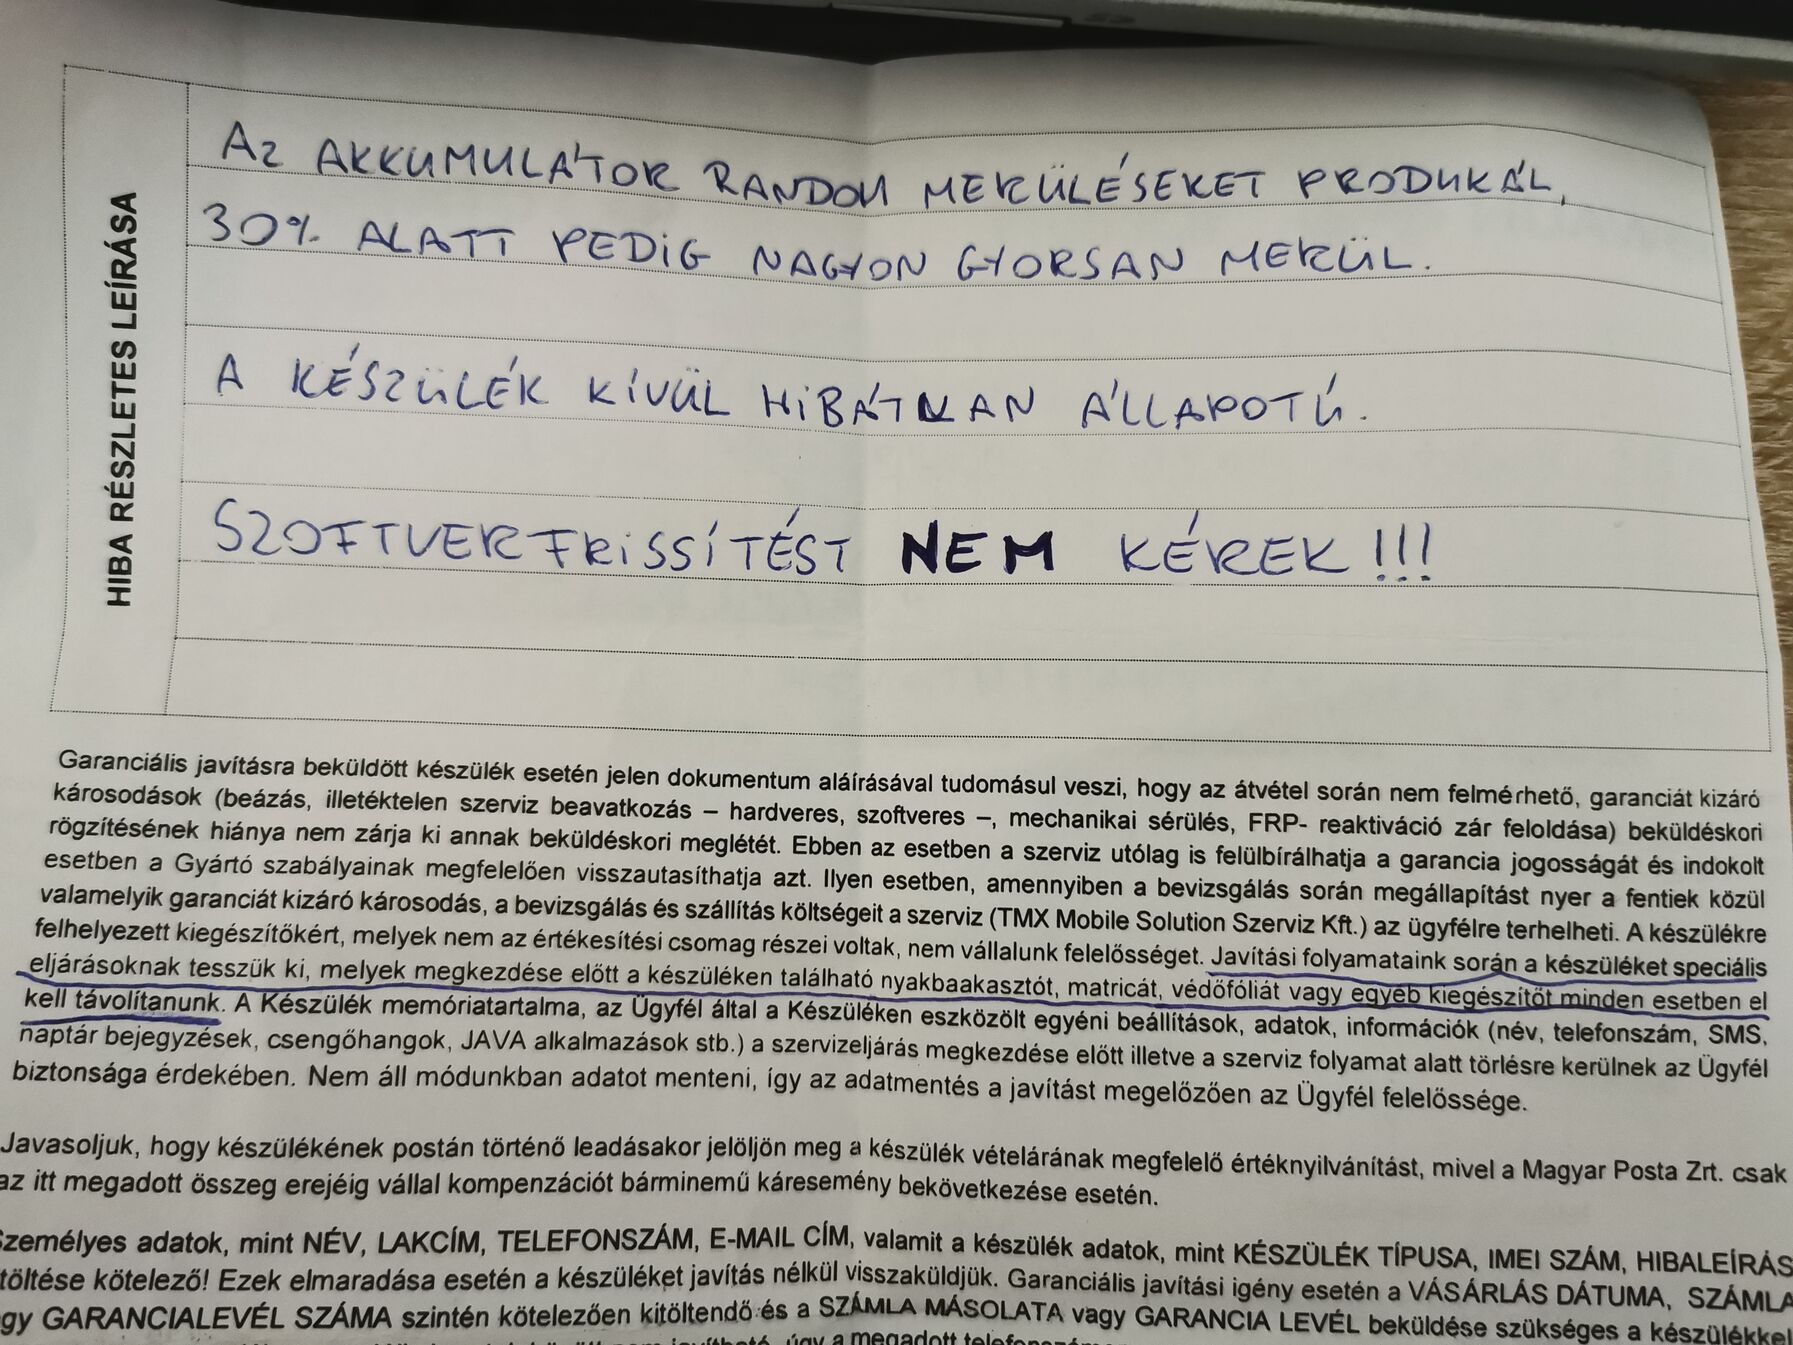 HIBA RÉSZLETES LEÍRÁSA
AZ AKKUMULÁTOR RANDOM MERÜLÉSEKET PRODUKÁL,
30% ALATT PEDIG NAGYON GYORSAN MERÜL.
A KÉSZÜLÉK KÍVÜL HIBÁTLAN ÁLLAPOTÚ.
SZOFTVERFRISSÍTÉST NEM KÉREK!!!
Garanciális javításra beküldött készülék esetén jelen dokumentum aláírásával tudomásul veszi, hogy az átvétel során nem felmérhető, garanciát kizáró
károsodások (beázás, illetéktelen szerviz beavatkozás – hardveres, szoftveres –, mechanikai sérülés, FRP- reaktiváció zár feloldása) beküldéskori
rögzítésének hiánya nem zárja ki annak beküldéskori meglétét. Ebben az esetben a szerviz utólag is felülbírálhatja a garancia jogosságát és indokolt
esetben a Gyártó szabályainak megfelelően visszautasíthatja azt. Ilyen esetben, amennyiben a bevizsgálás során megállapítást nyer a fentiek közül
valamelyik garanciát kizáró károsodás, a bevizsgálás és szállítás költségeit a szerviz (TMX Mobile Solution Szerviz Kft.) az ügyfélre terhelheti. A készülékre
felhelyezett kiegészítőkért, melyek nem az értékesítési csomag részei voltak, nem vállalunk felelősséget. Javítási folyamataink során a készüléket speciális
eljárásoknak tesszük ki, melyek megkezdése előtt a készüléken található nyakbaakasztót, matricát, védőfóliát vagy egyéb kiegészítőt minden esetben el
kell távolítanunk. A Készülék memóriatartalma, az Ügyfél által a Készüléken eszközölt egyéni beállítások, adatok, információk (név, telefonszám, SMS,
naptár bejegyzések, csengőhangok, JAVA alkalmazások stb.) a szervizeljárás megkezdése előtt illetve a szerviz folyamat alatt törlésre kerülnek az Ügyfél
biztonsága érdekében. Nem áll módunkban adatot menteni, így az adatmentés a javítást megelőzően az Ügyfél felelőssége.
Javasoljuk, hogy készülékének postán történő leadásakor jelöljön meg a készülék vételárának megfelelő értéknyilvánítást, mivel a Magyar Posta Zrt. csak
az itt megadott összeg erejéig vállal kompenzációt bárminemű káresemény bekövetkezése esetén.
Személyes adatok, mint NÉV, LAKCÍM, TELEFONSZÁM, E-MAIL CÍM, valamit a készülék adatok, mint KÉSZÜLÉK TÍPUSA, IMEI SZÁM, HIBALEÍRÁS
töltése kötelező! Ezek elmaradása esetén a készüléket javítás nélkül visszaküldjük. Garanciális javítási igény esetén a VÁSÁRLÁS DÁTUMA, SZÁMLA
gy GARANCIALEVÉL SZÁMA szintén kötelezően kitöltendő és a SZÁMLA MÁSOLATA vagy GARANCIA LEVÉL beküldése szükséges a készülékkel